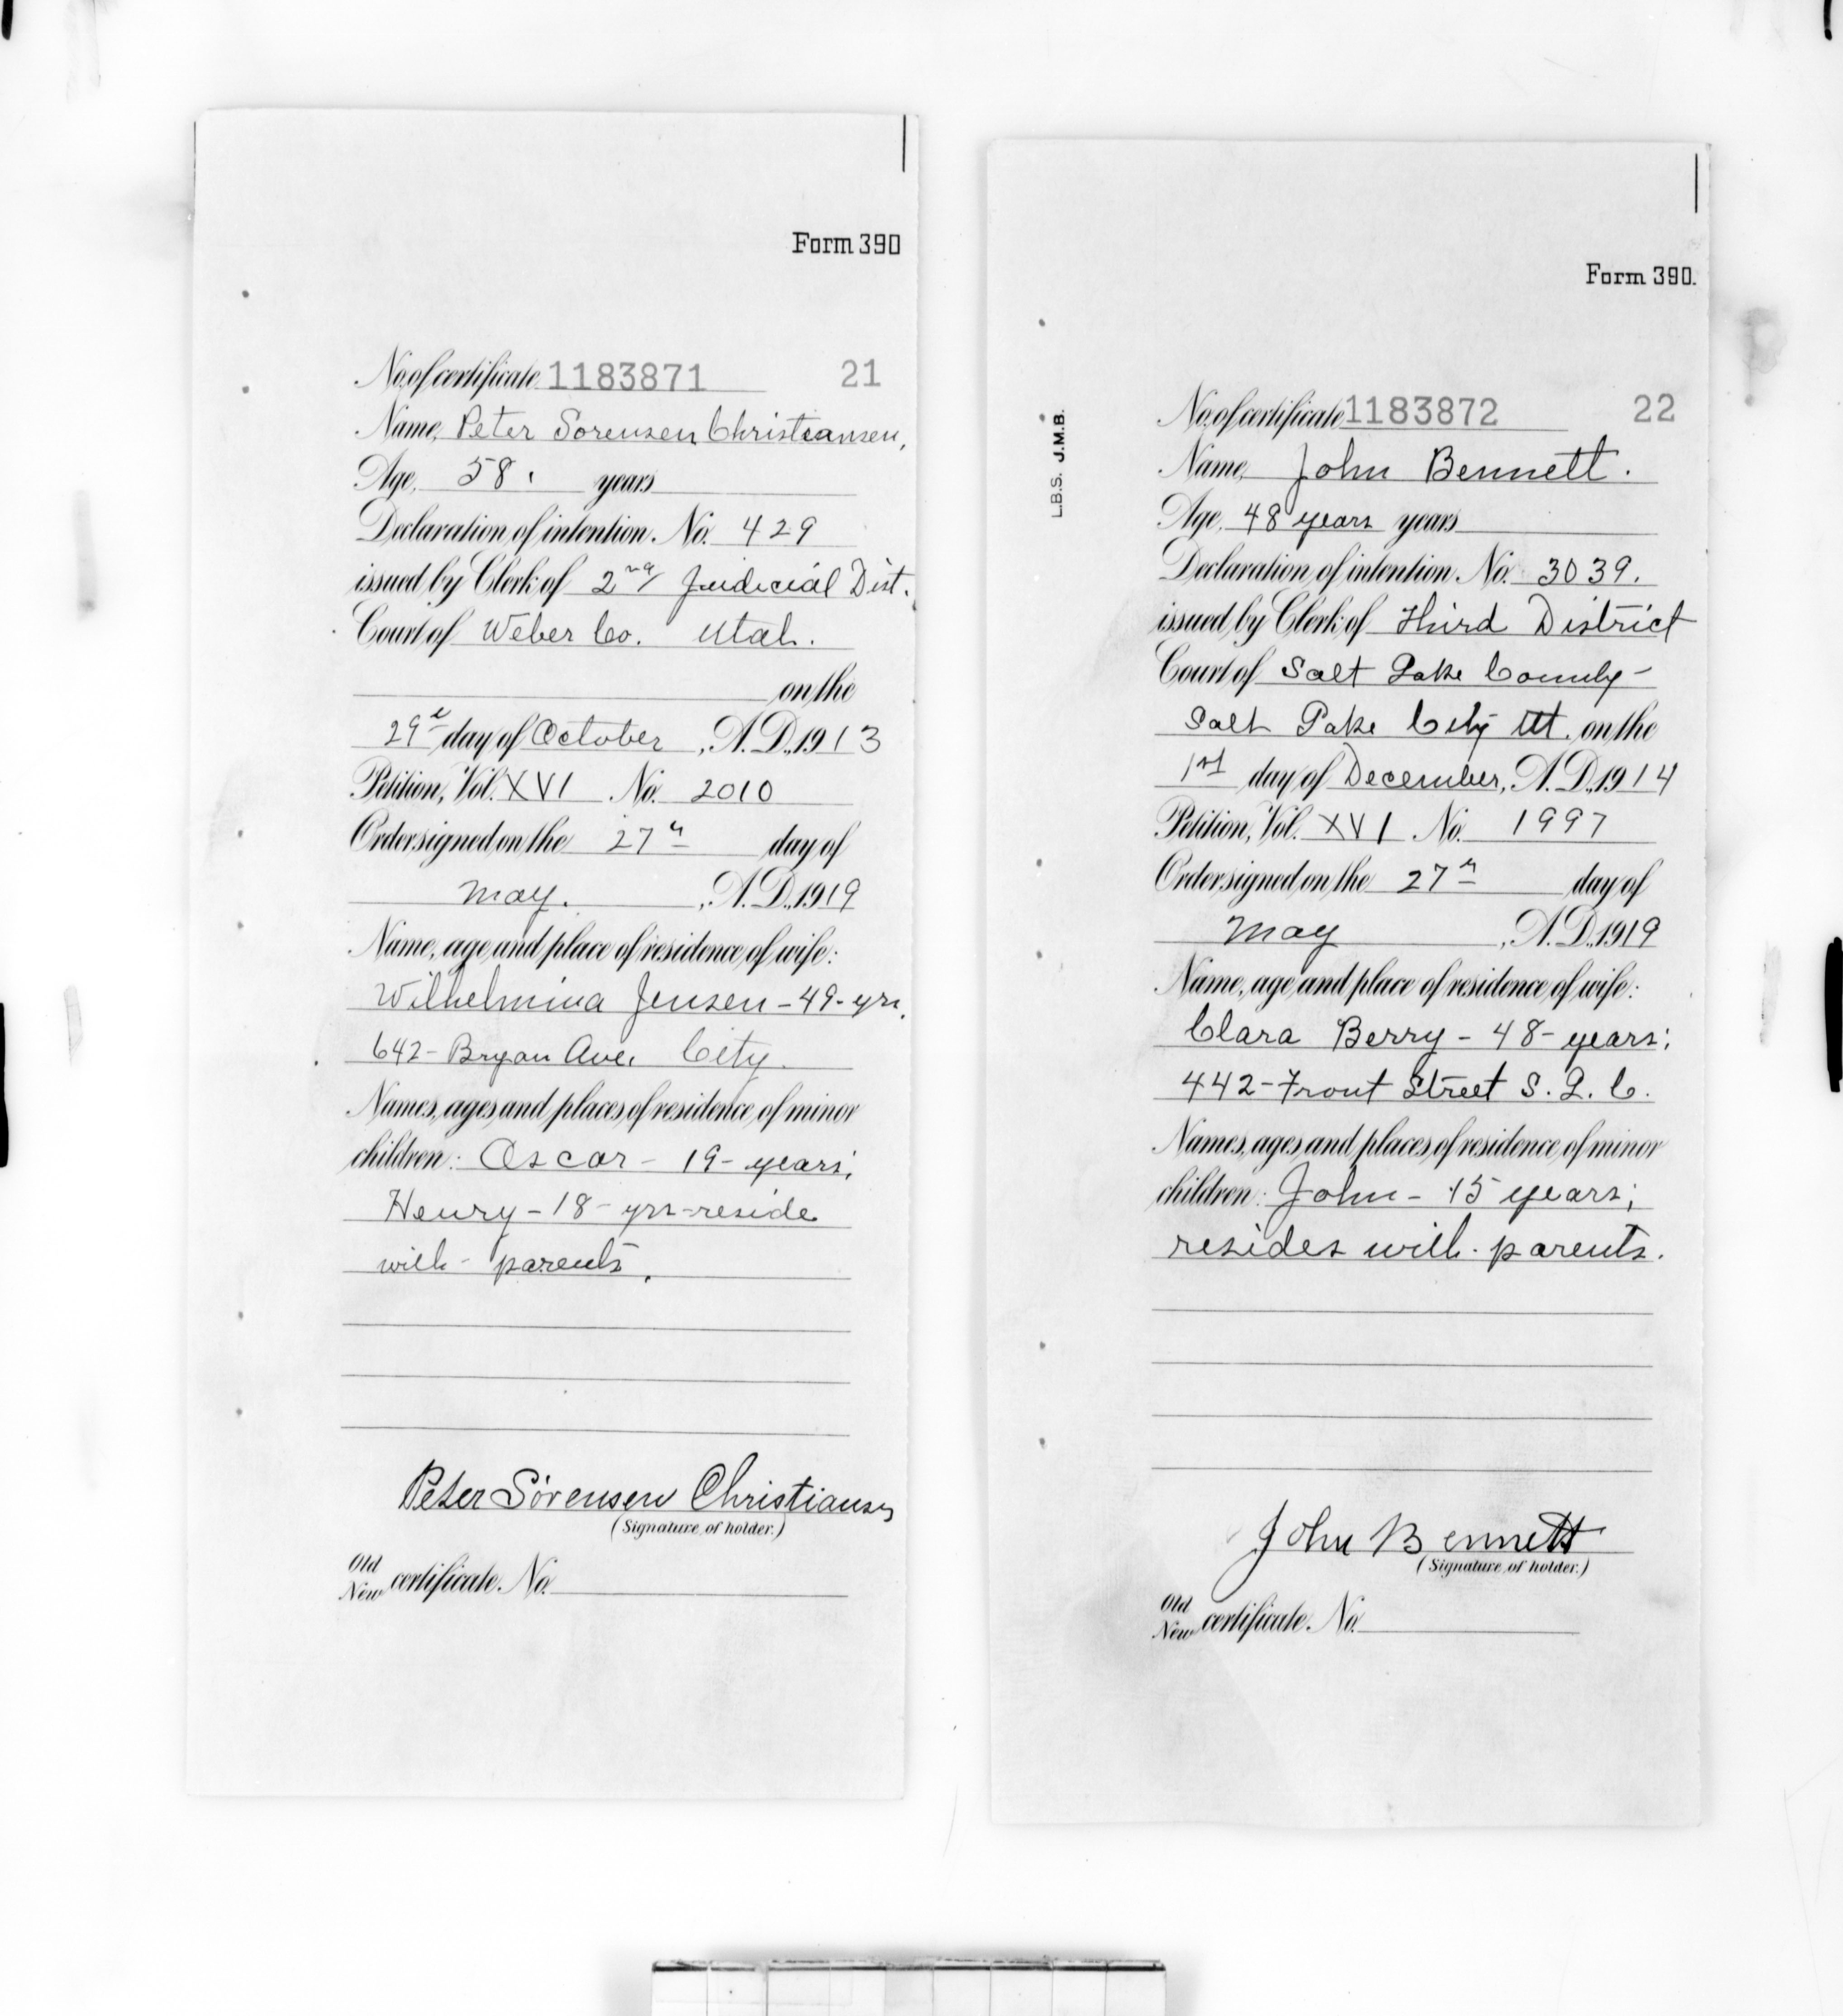 Form 390
No. of certificate 1183871 21
Name, Peter Sorensen Christiansen,
Age, 58. years
Declaration of intention No. 429
issued by Clerk of 2nd Judicial Dist.
Court of Weber Co. Utah.
on the
29th day of October, A.D., 1913
Petition, Vol. XVI No. 2010
Order signed on the 27th day of
May., A.D., 1919
Name, age, and place of residence of wife:
Wilhelmina Jensen - 49 - yrs.
642 - Bryan Ave. City.
Names, ages, and places of residence of minor
children: Oscar - 19 - years;
Henry - 18 - yrs - reside
with - parents.
Peter Sörensen Christiansen
(Signature of holder.)
Old
New certificate No.
Form 390.
L.B.S. J.M.B.
No. of certificate 1183872 22
Name, John Bennett.
Age, 48 years years
Declaration of intention No. 3039.
issued by Clerk of Third District
Court of Salt Lake County -
Salt Lake City Ut. on the
1st day of December, A.D., 1914
Petition, Vol. XVI No. 1997
Order signed on the 27th day of
May, A.D., 1919
Name, age, and place of residence of wife:
Clara Berry - 48 - years;
442 - Front Street S. L. C.
Names, ages, and places of residence of minor
children: John - 15 years;
resides with - parents.
John Bennett
(Signature of holder.)
Old
New certificate No.